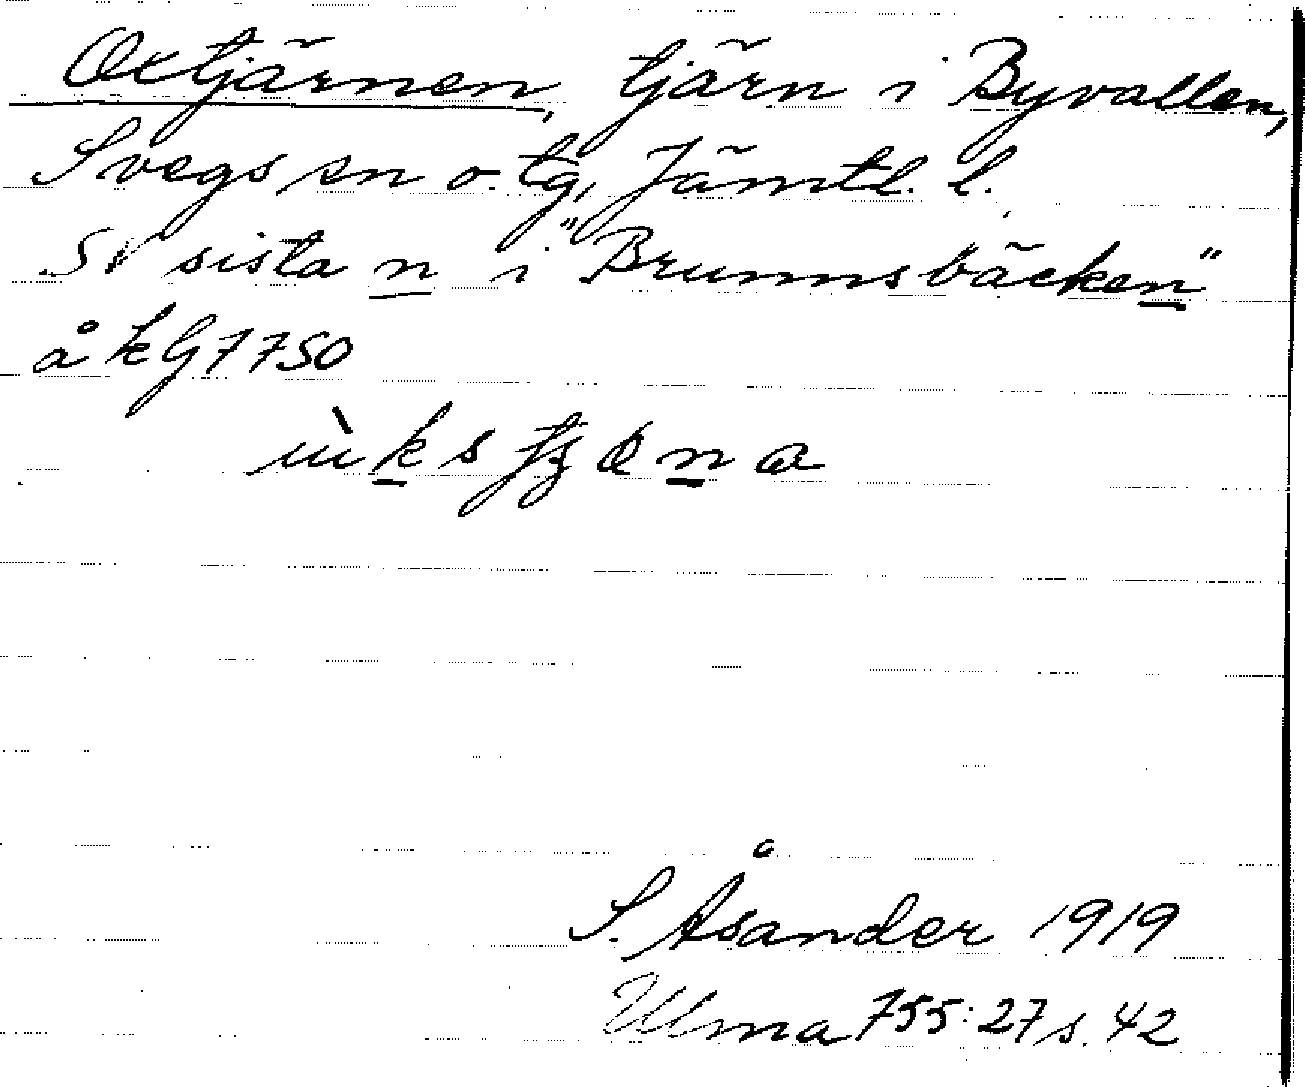 Oxtjärnen, tjärn i Byvallen,
Svegs sn o. tg, Jämtl. l.
SV sista n i "Brunnsbäcken"
å k G 7750
S. Åsander 1919
Ulma 755:27 s. 42